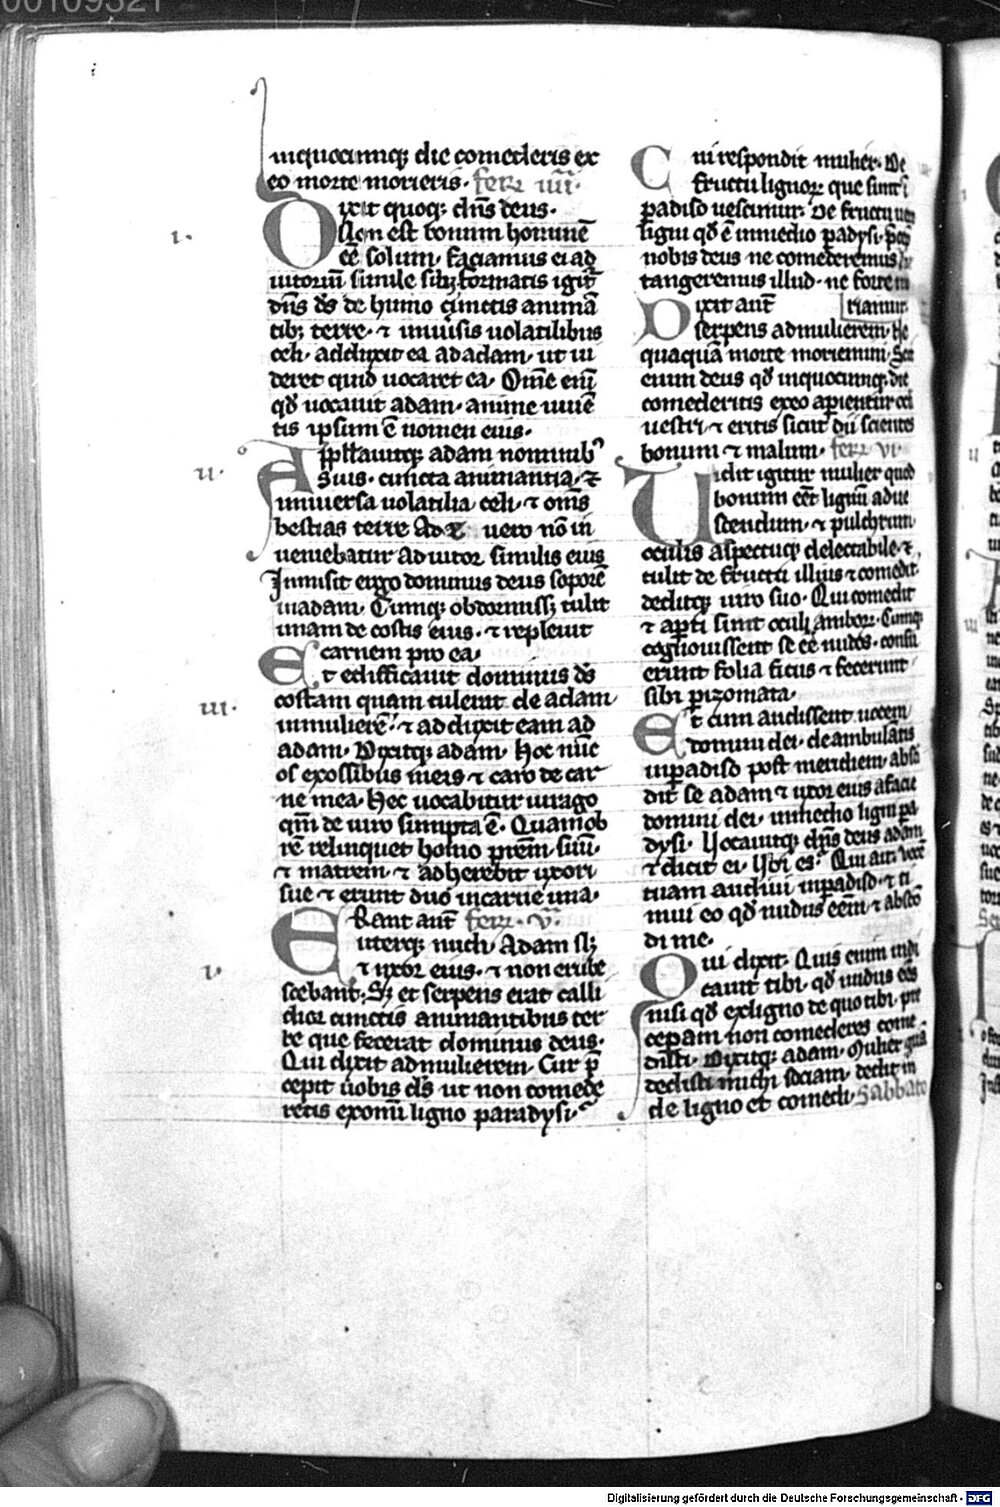 inquocumq; die comederis ex
eo morte morieris. feria iiii.
Dixit quoq; dn̄s deus.
Non est bonum hominē
eē solum. faciamus ei ad
iutoriū simile sibi; formatis igit̄
dn̄s ds̄ de humo cūnctis animā
tib; terre. ⁊ uniu͛sis uolatilibus
celi. adduxit ea ad adam. ut ui
deret quid uocaret ea. Om̄e eni
qd̄ uocauit adam. anime uiuē
tis ipsum ē nomen eius.
Appllauitq; adam nominib᾿
suis. cuncta animantia. ⁊
uniuersa uolatilia celi. ⁊ om̄s
bestias terre Ade uero nō in
ueniebatur adiutor similis eius
Inmisit ergo dominus deus soporē
inadam. Cumq; obdormiss; tulit
unam de costis eius. ⁊ repleuit
carnem pro ea.
Et edifficauit dominus ds̄
costam quam tulerat de adam
inmulierē. ⁊ adduxit eam ad
adam. Dixitq; adam. Hoc nūc
os exossibus meis ⁊ caro de car
ne mea. Hec uocabitur uirago
qm̄ de uiro sumpta ē. Quamob
rē relinquet homo prēm. suū.
⁊ matrem. ⁊ adherebit uxori
sue ⁊ erunt duo incarne una.
ERant aut̄ feria. v.
uterq; nudi. Adam sl;
⁊ uxor eius. ⁊ non erube
scebant. S; et serpens erat calli
dior cunctis animantibus ter
re que fecerat dominus deus.
Qui dixit admulierem. Cur p̄
cepit uobis ds̄ ut non comede
retis exomī ligno paradysi.
Cui respondit mulier. De
fructu lignor̄ que sunt ī
padiso uescimur. De fructu u͛o
ligni qd̄ ē inmedio padysi. p̄cep
nobis deus ne comederemus
tangeremus illud. ne forte m
Dixit aut̄ riamur.
serpens admulierem. Ne
quaquā morte moriemini. Sci
enim deus qd̄ inquocumq; die
comederitis exeo apientur oci
uestri ⁊ eritis sicut dii scientes
bonum ⁊ malum. feria vi.
Uidit igitur mulier quod
bonum eēt lignū adue
scendum. ⁊ pulchrum
oculis aspectuq; delectabile. ⁊
tulit de fructu illius ⁊ comedit.
deditq; uiro suo. Qui comedit
⁊ apti sunt oculi amborꝝ. Cumq;
cognouissent se eē nudos. consu
erunt folia ficus ⁊ fecerunt
sibi pizomata.
Et cum audissent uocem
domini dei. deambulātis
inpadiso post meridiem. absc̄
dit se adam ⁊ uxor eius afacie
domini dei. inmedio ligni pa
dysi. Uocauitq; dn̄s deus adam
⁊ dicit ei. Ubi es? Qui ait. vocē
tuam audiui inpadiso. ⁊ ti
mui eo qd̄ nudus eēm ⁊ absc̄o
di me.
Qui dixit. Quis enim indi
cauit tibi. qd̄ nudus ees
nisi qd̄ exligno de quo tibi. pre
cepam non comederes come
disti. Dixitq; adam. Mulier quā
dedisti michi sociam. dedit m
de ligno et comedi. Sabbato
i.
ii.
iii.
v.